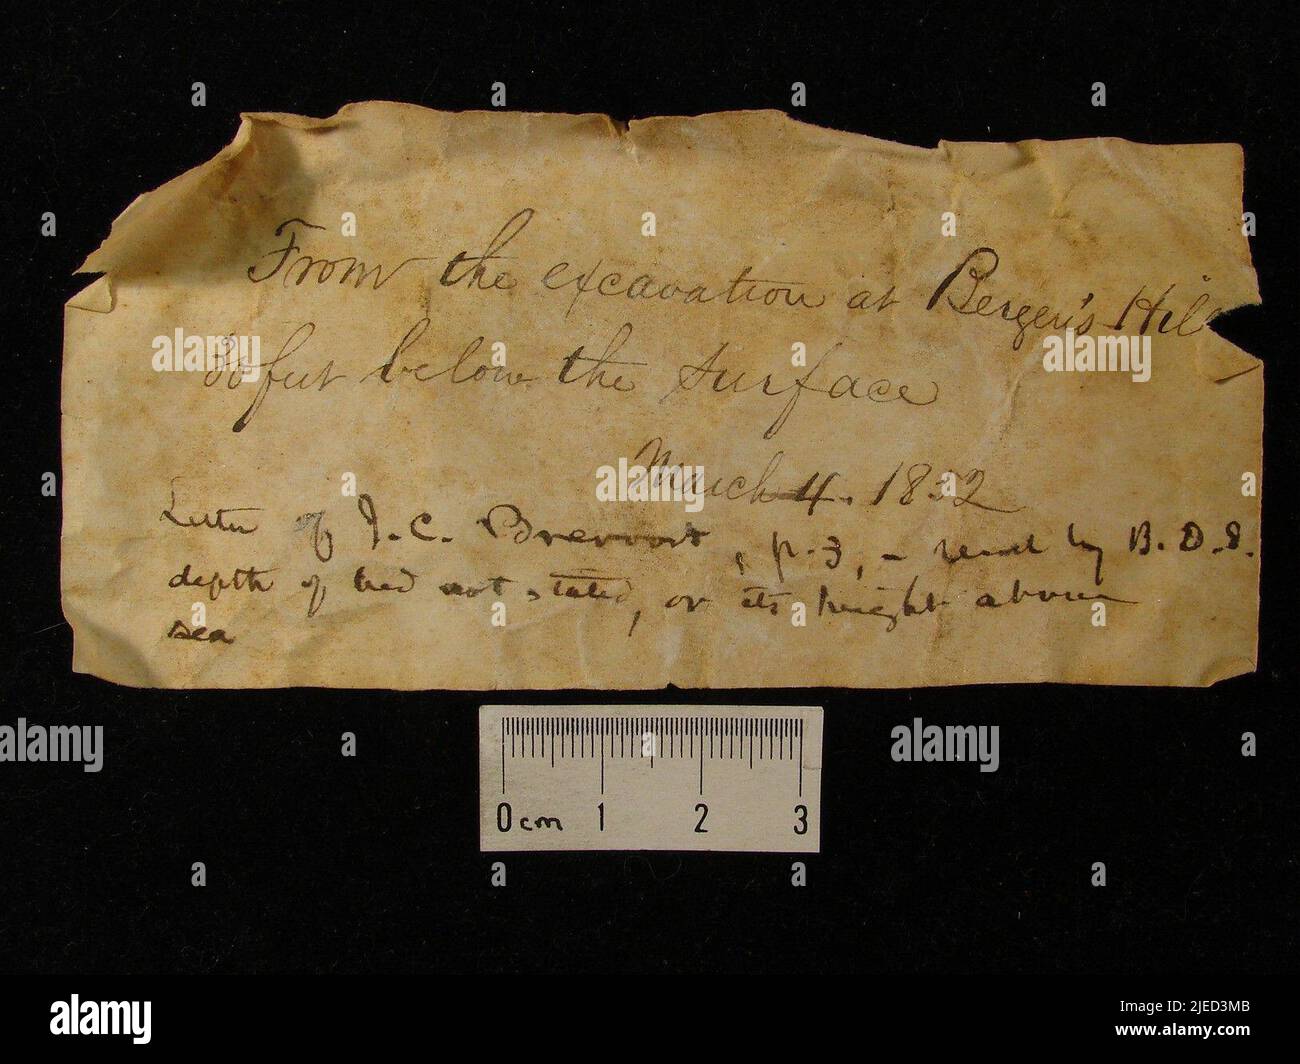 From the excavation at Bergen's Hill
30 feet below the surface
March 4. 1852
Letter of J. C. Brevoort, p. 3, – read by B. D. S.
depth of bed not stated, or its height above
sea
0 cm 1 2 3
alamy
Image ID: 2JED3MB
www.alamy.com